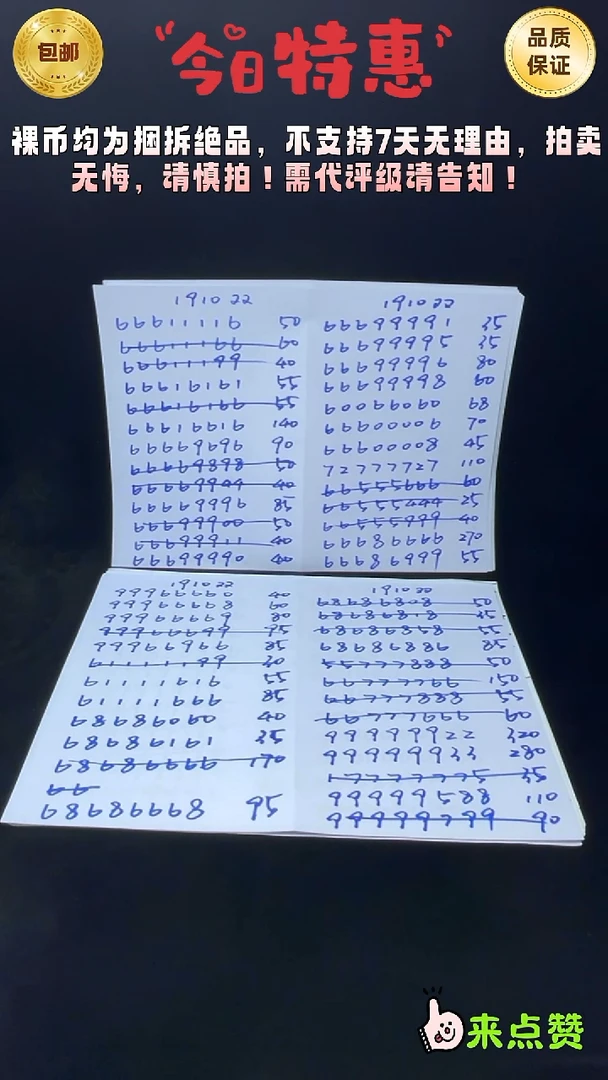 包邮
今日特惠
品质
保证
裸币均为捆拆绝品，不支持7天无理由，拍卖
无悔，请慎拍！需代评级请告知！
191022
66611116 50
66611166 60
66611199 40
66616161 55
66616166 55
66616616 140
66669696 90
66669898 50
66669999 40
66669996 85
66699900 50
66699911 40
66699990 40
191022
66699991 35
66699995 35
66699996 80
66699998 60
60066060 68
66600006 70
66600008 45
72777727 110
66555666 60
66555444 25
66555999 40
66686666 270
66686999 55
191022
99966660 40
99966668 60
99966669 80
99966699 95
99966966 85
61111199 30
61111616 55
61111666 85
68686060 40
68686161 35
68686666 170
66
68686668 95
68686808 50
68686818 35
68686858 55
68686886 85
55777888 50
66777766 150
66777888 55
66777666 60
99999922 320
99999933 280
17777775 35
99999588 110
99999799 90
来点赞